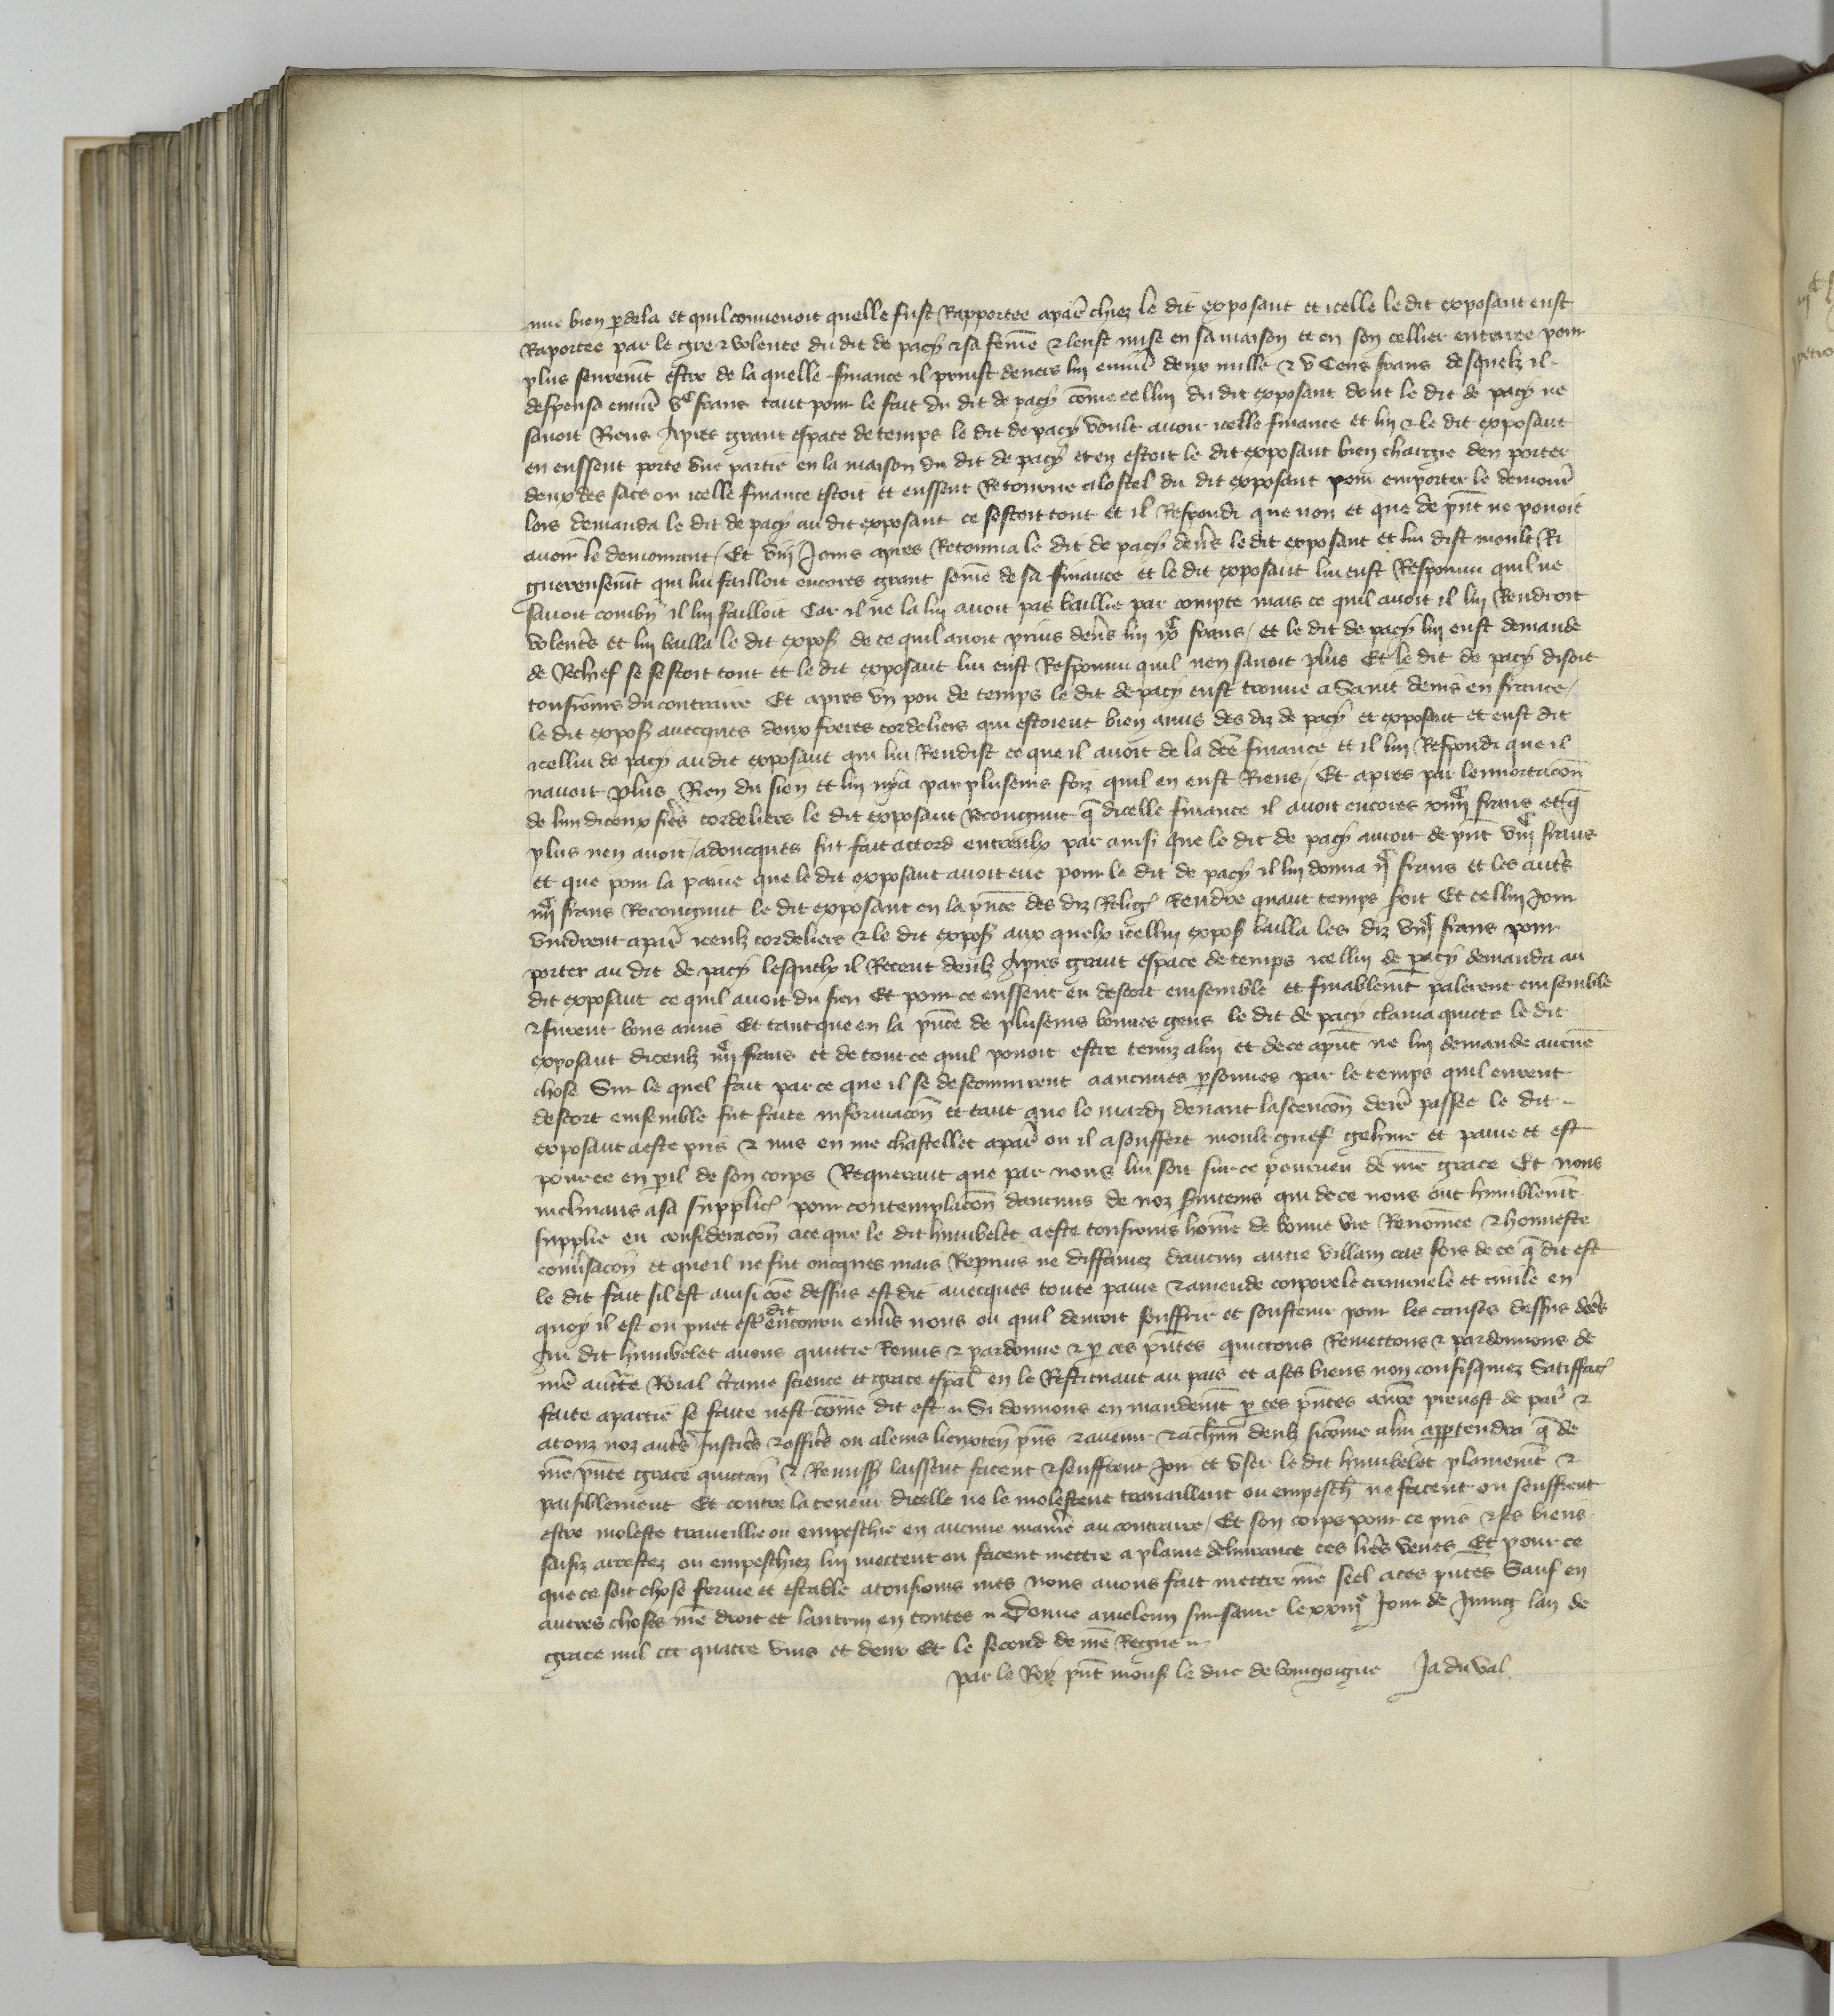 mie bien par dela et quil convenoit quelle fust Rapportee a paris chiez le dit exposant et icelle le dit exposant eust
Raportee par le gre & volente du dit de pacy & sa feme & leust mise en sa maison et en son cellier enterree pour
plus seuremēt estre de la quelle finance il prinst devers lui enuirō deux mille & v Cens frans desquelz il
despensa enuirō vᶜ frans tant pour le fait du dit de pacy cōme cellui du dit exposant dont le dit de pacy ne
savoit Riens Apres grant espace de temps le dit de pacy voult avoir icelle finance et lui & le dit exposant
en eussent porte une partie en la maison du dit de pacy et en estoit le dit exposant bien chargie den porter
deux des sacs ou icelle finance estoit et eussent Retourne a lostel du dit exposant pour emporter le demourāt
lors demanda le dit de pacy au dit exposant ce sestoit tout et il Respondi que non et que de pñt ne pouoit
avoir le demourant / Et viij Jours apres Retourna le dit de pacy devers le dit exposant et lui dist moult Ri
guereusemēt qui lui failloit encores grant sōme de sa finance et le dit exposant lui eust Respondu quil ne
savoit combiē il lui failloit Car il ne la lui avoit pas baillie par compte mais ce quil avoit il lui Rendroit
volentiers et lui bailla le dit expos de ce quil avoit prins devers lui ixᶜ frans / et le dit de pacy lui eust demande
de Rechief se sestoit tout et le dit exposant lui eust Respondu quil nen savoit plus Et le dit de pacy disoit
tousiours du contraire Et apres un pou de temps le dit de pacy eust trouve a Saint denis en france /
le dit expos avecques deux freres cordeliers qui estoient bien amis des diz de pacy et exposant et eust dit
icellui de pacy au dit exposant qui lui Rendist ce que il avoit de la dcē finance et il lui Respondi que il
navoit plus Rien du sien et lui nya par plusieurs foiz quil en eust Riens / Et apres par lennortacoñ
de lun diceux freres cordeliers le dit exposant Recongnut q̄ dicelle finance il avoit encores xiiijᶜ frans et q̄
plus nen avoit / adoncques fut fait accord entreulx par ainsi que le dit de pacy auroit de pñt viijᶜ frans
et que pour la paine que le dit exposant avoit eue pour le dit de pacy il lui donna ijᶜ frans et les autres
iiijᶜ frans Recongnut le dit exposant en la pñce des diz Relig̃ Rendre quant temps soit Et cellui Jour
vindrent a paris iceulx cordeliers & le dit expos aux quelx icellui expos bailla les diz viijᶜ frans pour
porter au dit de pacy lesquelx il Receut deulx Apres grant espace de temps icellui de pacy demanda au
dit exposant ce quil avoit du sien Et pour ce eussent eu descort ensemble et finablemēt palerent ensemble
& furent bons amis Et tant que en la pñce de plusieurs bonnes gens le dit de pacy clama quicte le dit
exposant diceulx iiijᶜ frans et de tout ce quil pouoit estre tenuz a lui et de ce a pñt ne lui demande aucune
chose Sur le quel fait par ce que il se descouvrirent a aucunes psonnes par le temps quil eurent
descort ensemble fut faite informacoñ et tant que le mardi devant lascencoñ derr̄ passee le dit
exposant a este pris & mis en nre chastellet a paris ou il a souffert moult grief gehine et paine et est
pour ce en pil de son corps Requerant que par nous lui soit sur ce pourveu de nre grace Et nous
inclinans a sa supplic̄ pour contemplacoñ daucuns de noz serviteurs qui de ce nous ont humblemēt
supplie en consideracoñ a ce que le dit humbelet a este tousiours hōme de bonne vie Renōmee & honneste
conversacoñ et que il ne fut oncques mais Reprins ne diffamez daucun autre villain cas fors de ce q̄ dit est
le dit fait sil est ainsi cōe dessus est dit avecques toute paine & amende corporele criminele et civile en
quoy il est ou puet estr̄ dit encouru envers nous ou quil devroit souffrir et soustenir pour les causes dessus dcēs
Au dit humbelet avons quictie Remis & pardonne & p ces pñtes quictons Remettons & pardonnons de
nre auctē Roial ctaine science et grace espāl en le Restituant au pais et a ses biens non confisquiez Satiffac̄
faite a partie se faite nest cōme dit est Si donnons en mandemēt p ces pñtes au prevost de paris &
a touz noz autres Justiciers & officiers ou a leurs lieuxten̄ pñs & avenir & a chūn deulx sicōme a lui appartendra q̄ de
nre pñte grace quictan̄ & Remiss laissent facent & seuffrent Joir et user le dit humbelet plainemēt &
paisiblement Et contre la teneur dicelle ne le molestent travaillent ou empesch̄ ne facent ou seuffrent
estre moleste travaillie ou empeschie en aucune maniere au contraire / Et son corps pour ce pris & ses biens
saisiz arrestez ou empeschiez lui mettent ou facent mettre a plaine delivrance ces lrēs veues Et pour ce
que ce soit chose ferme et estable a tousiours mes nous avons fait mettre nre seel a ces pñtes Sauf en
autres choses nre droit et lautrui en toutes Donne a meleun sur saine le xxiiijᵉ Jour de Juing lan de
grace mil ccc quatre vins et deux Et le second de nre Regne
par le Roy pñt mons le duc de bourgoigne Ja du val